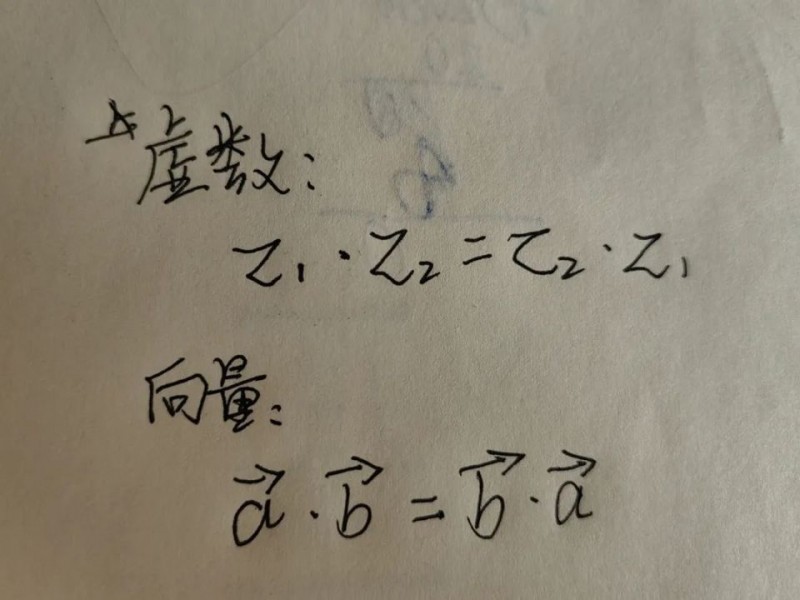 虚数:
z₁·z₂=z₂·z₁
向量:
a⃗·b⃗=b⃗·a⃗